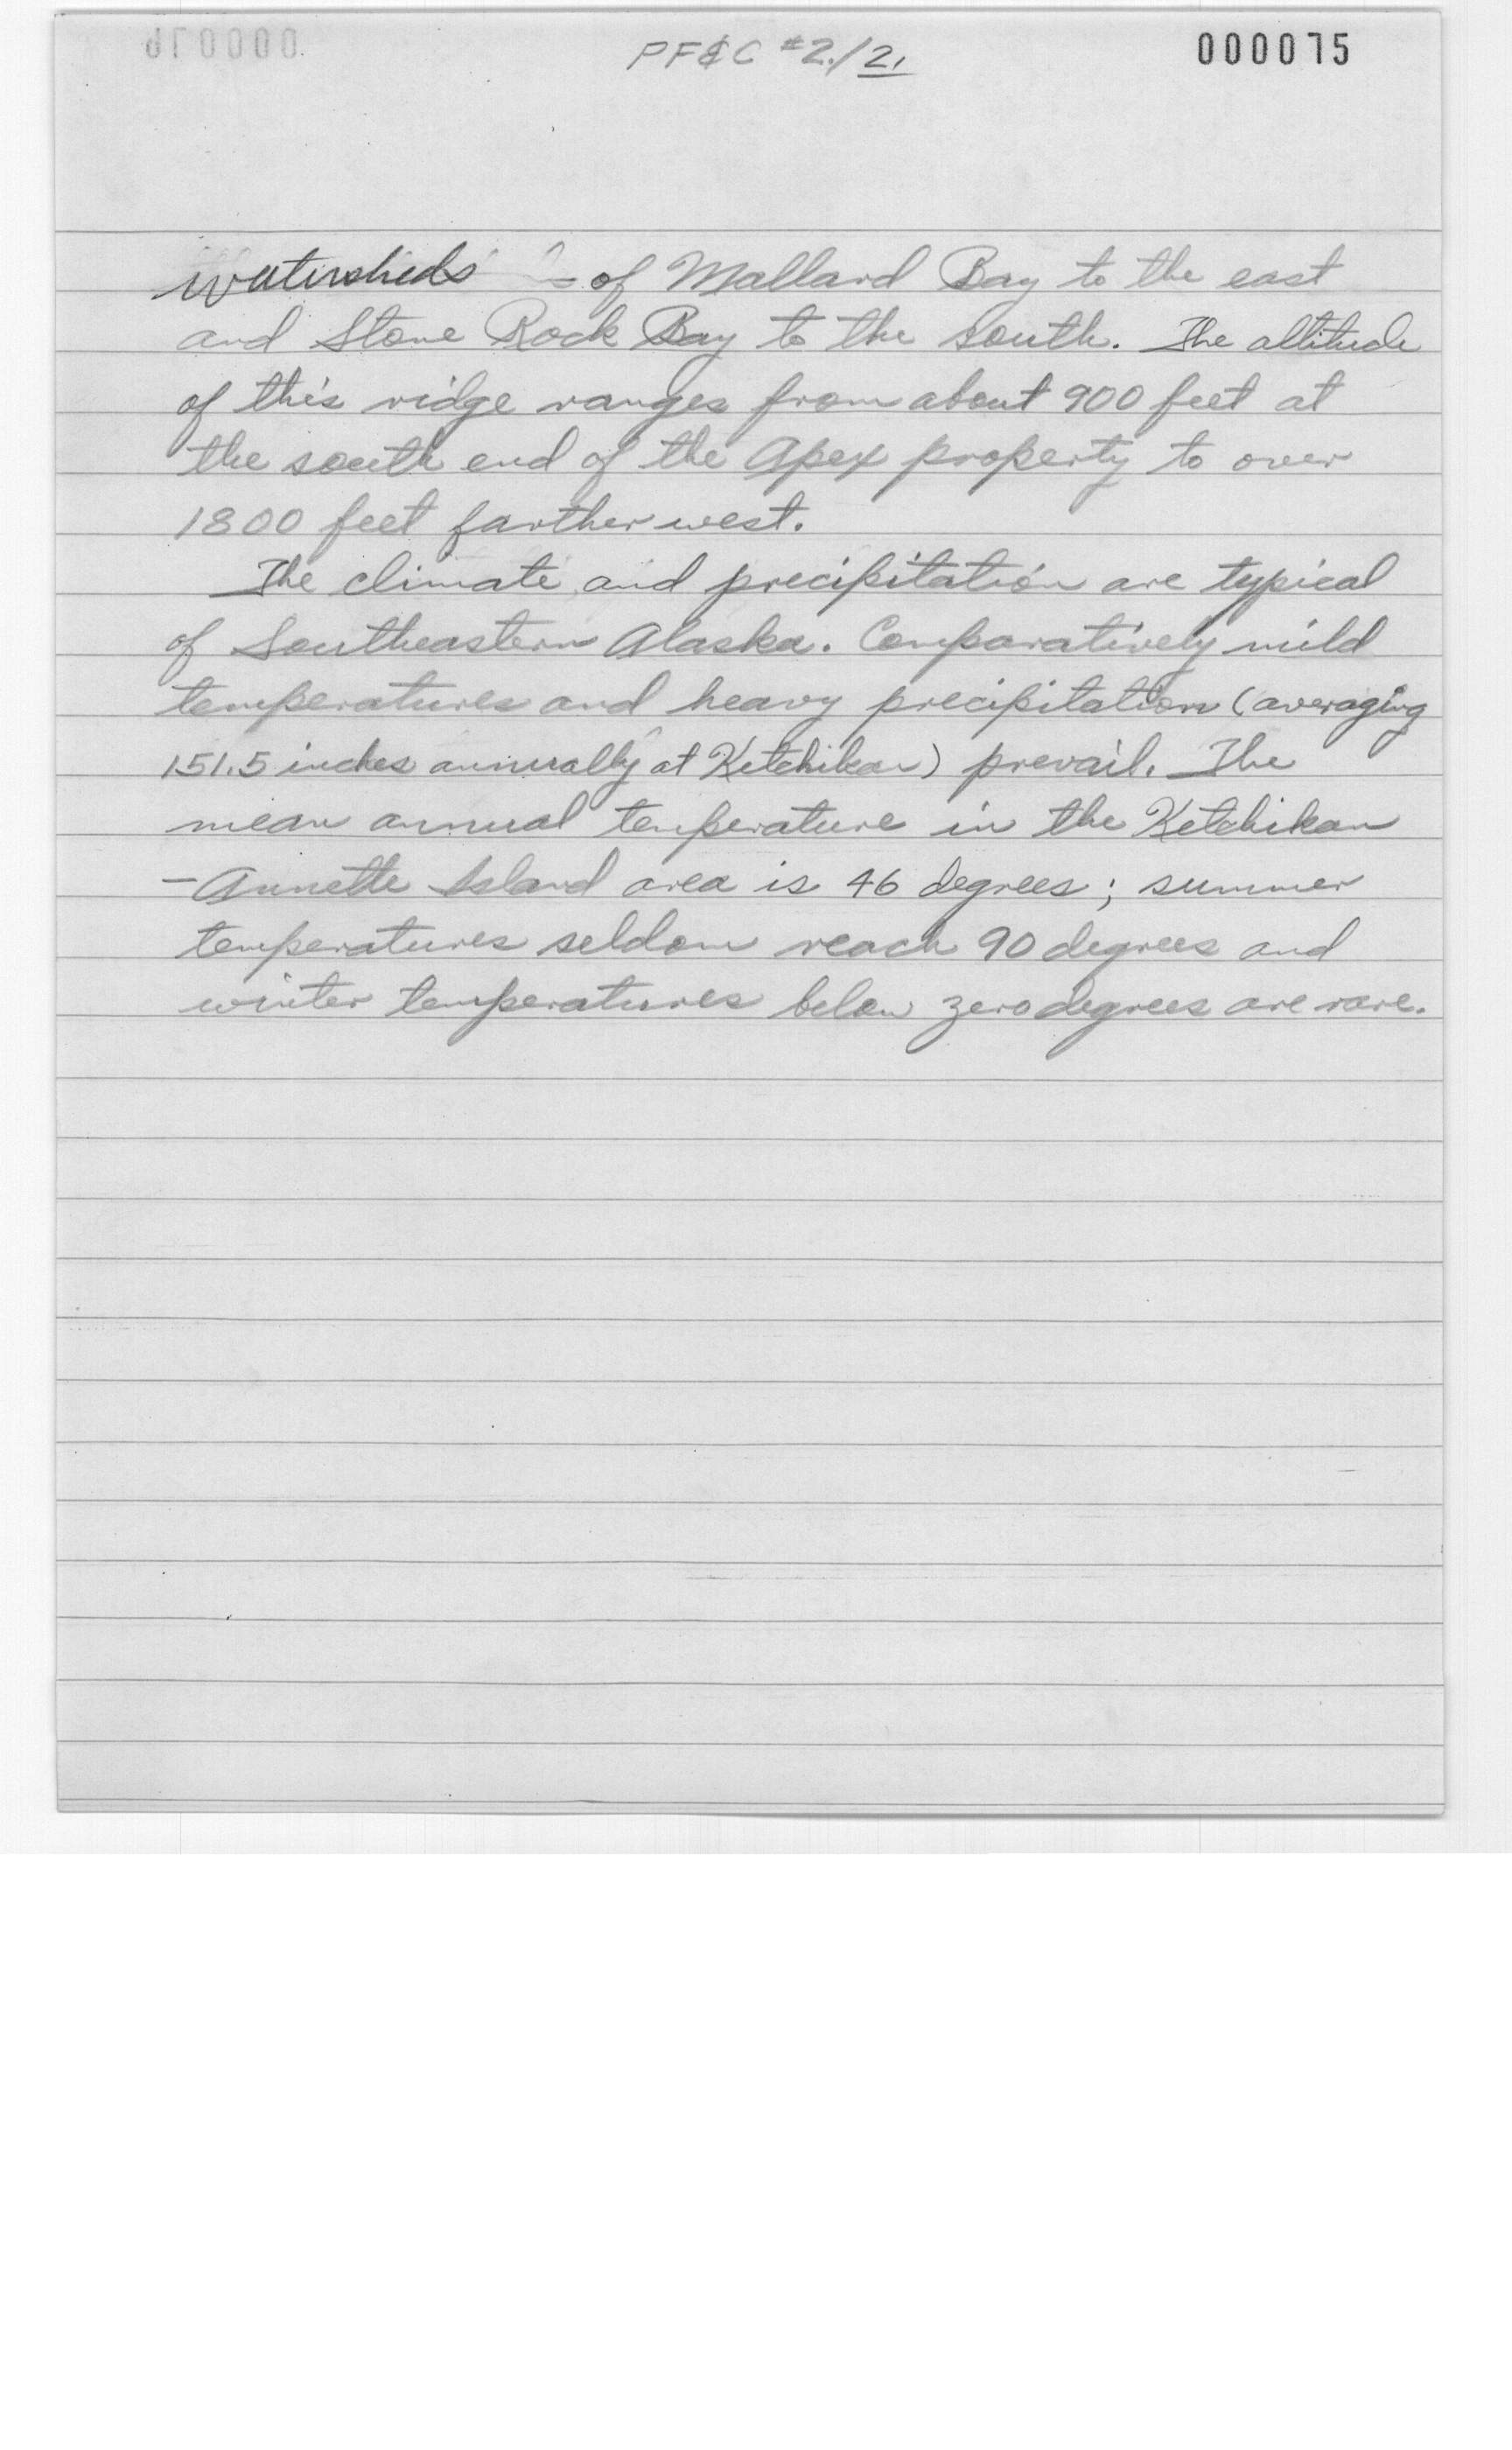 PF&C #2./2.
000015
watersheds of Mallard Bay to the east
and Stone Rock Bay to the south. The altitude
of this ridge ranges from about 900 feet at
the south end of the Apex property to over
1800 feet farther west.
The climate and precipitation are typical
of Southeastern Alaska. Comparatively mild
temperatures and heavy precipitation (averaging
151.5 inches annually at Ketchikan) prevail. The
mean annual temperature in the Ketchikan
-Annette Island area is 46 degrees; summer
temperatures seldom reach 90 degrees and
winter temperatures below zero degrees are rare.